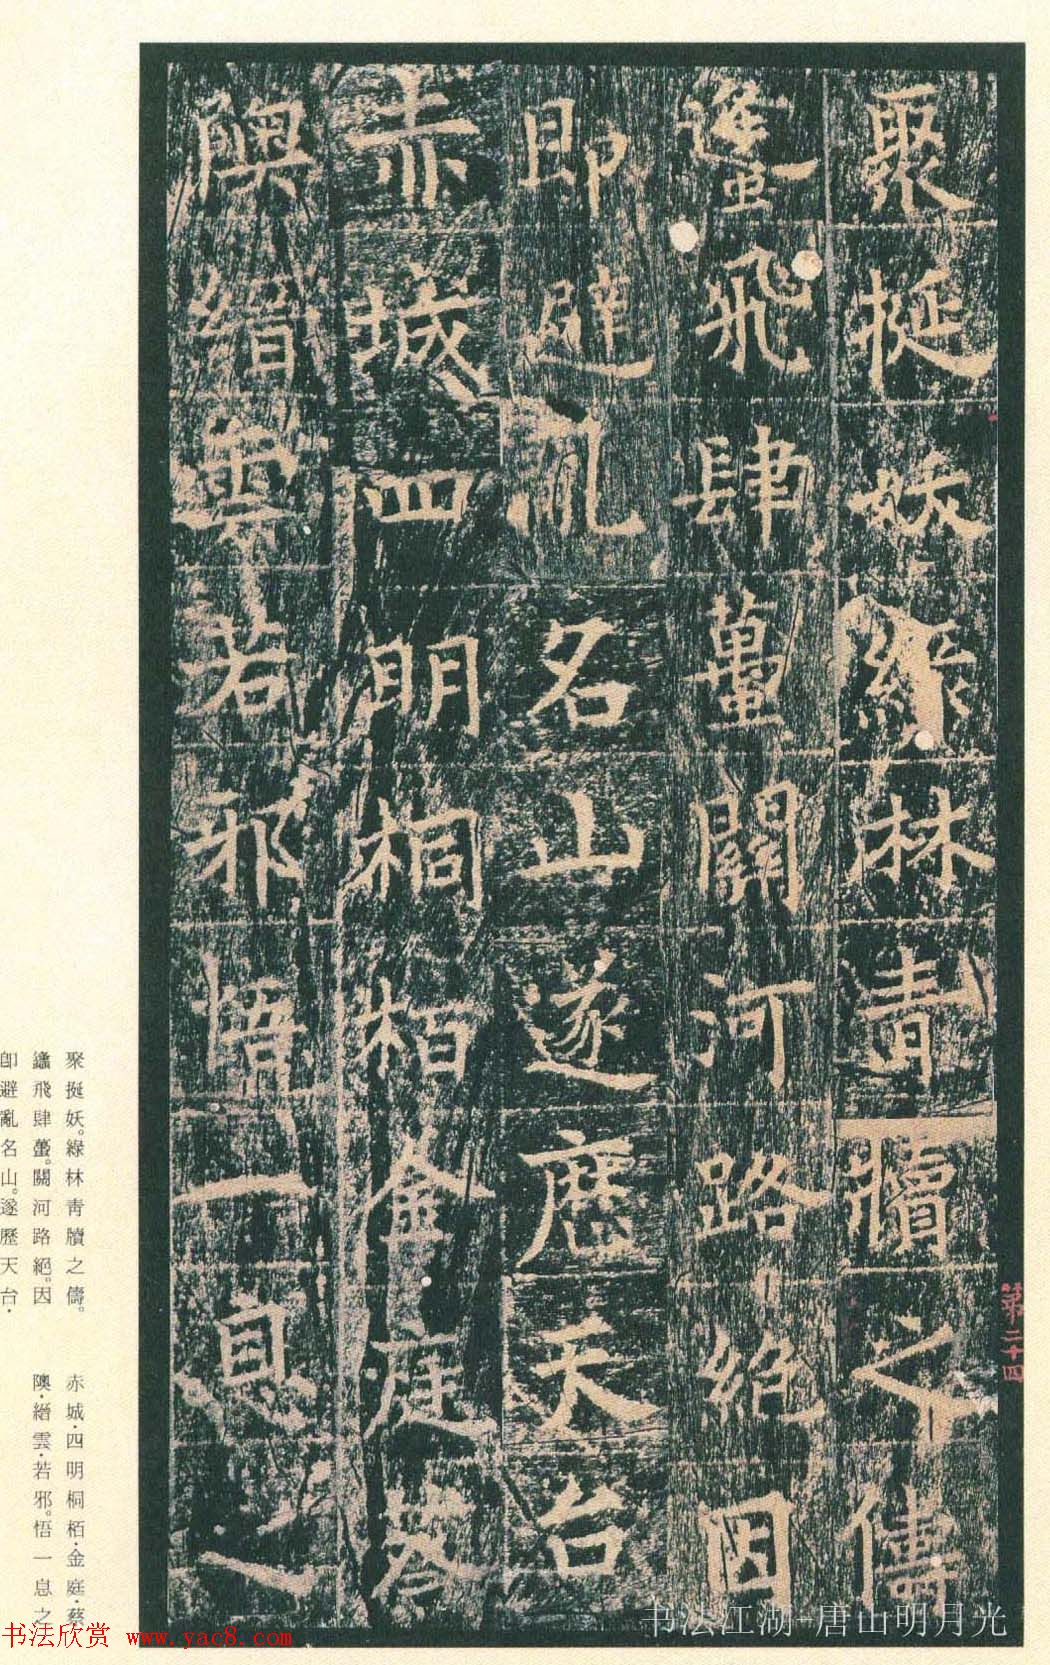 聚挻妖綠林青犢之儔
蠭飛肆蠆關河路絕因
即避亂名山遂歷天台
赤城四明桐栢金庭蔡
隩縉雲若邪悟一息之
第二十四
聚挻妖。綠林青犢之儔。
蠭飛肆蠆。關河路絕。因
即避亂名山。遂歷天台·
赤城·四明桐栢·金庭·蔡
隩·縉雲·若邪。悟一息之
书法江湖-唐山明月光
书法欣赏 www.yac8.com